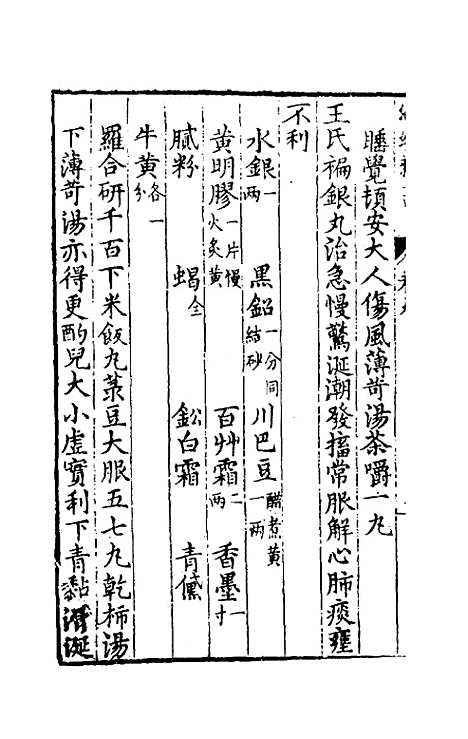 睡覺頓安大人傷風薄荷湯茶嚼一丸
王氏褊銀丸治急慢驚涎潮發搐常服解心肺痰壅
不利
水銀一兩　黑鉛一分同結砂　川巴豆醋煮黃一兩
黃明膠一片慢火炙黃　百艸霜二兩　香墨一寸
膩粉　蝎全　鈆白霜　青黛
牛黃各一分
羅合研千百下米飯丸菉豆大服五七丸乾柹湯
下薄荷湯亦得更酌兒大小虛實利下青黏滑涎